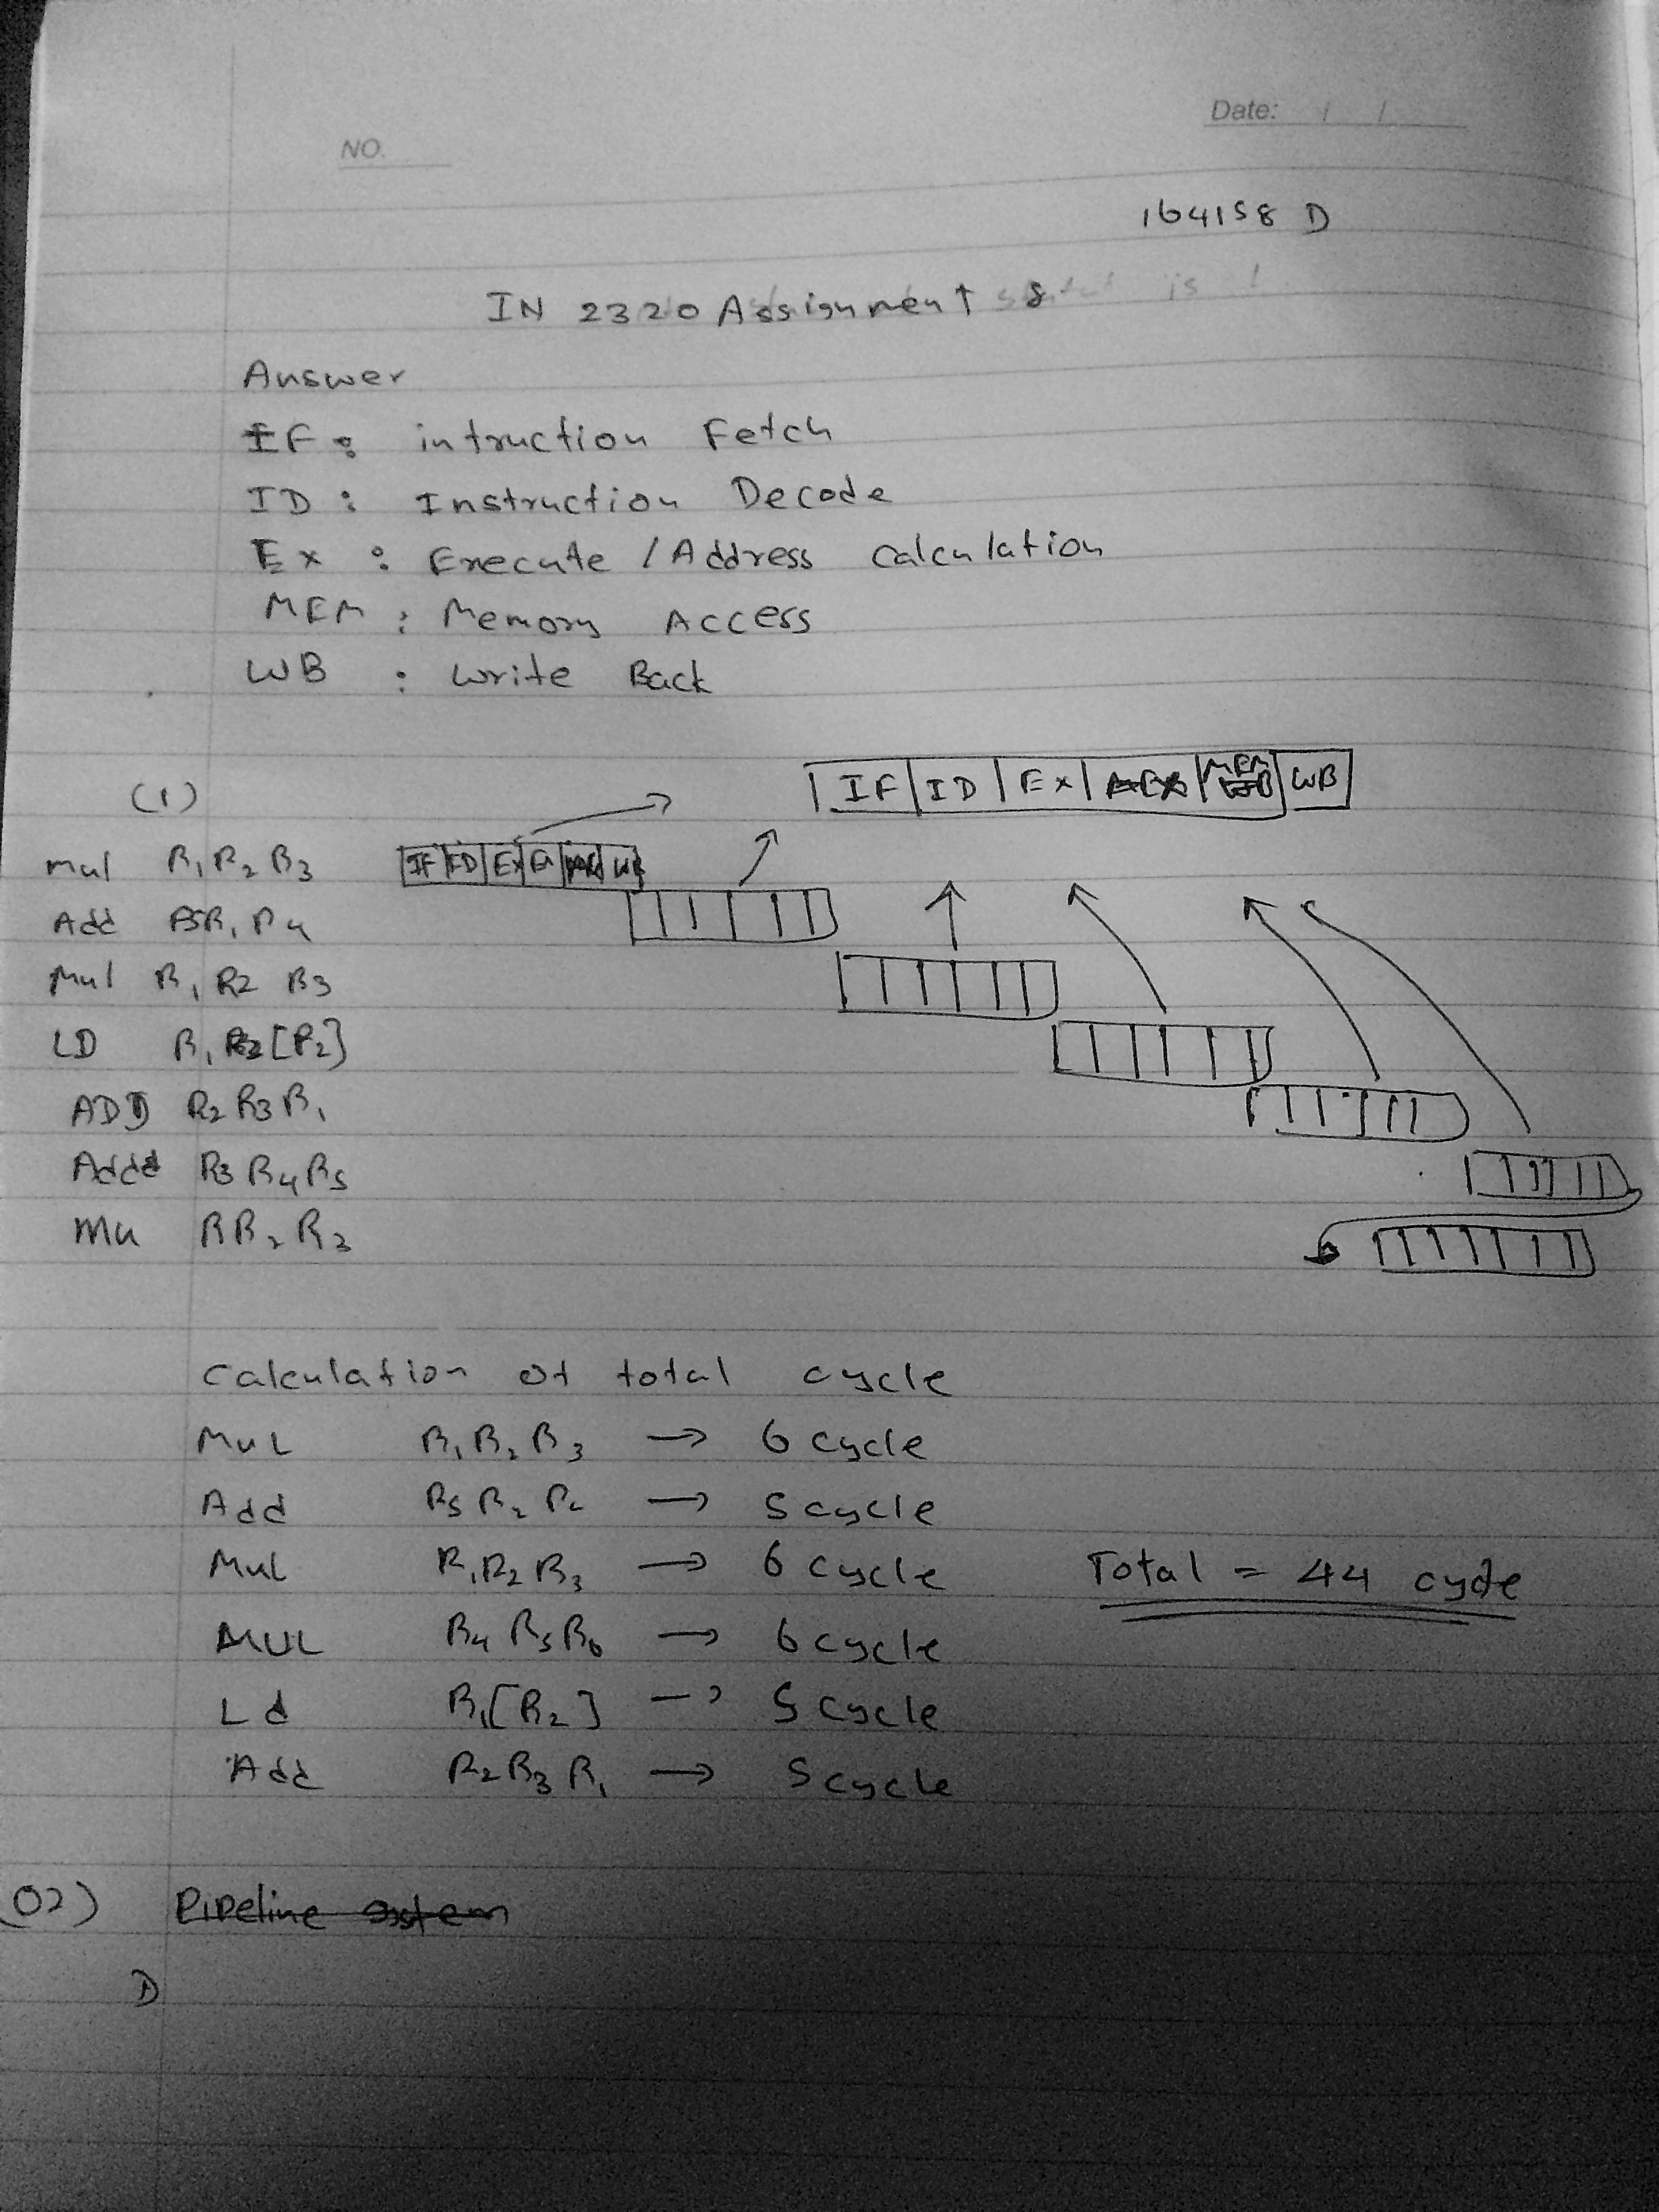 Date: / /
NO.
164158 D
IN 2320 Assignment 8
Answer
IF : intruction Fetch
ID : Instruction Decode
Ex : Execute / Address calculation
MEM : Memory Access
WB : write Back
IF ID Ex MEM WB
(1)
mul R1 R2 R3 IF ID Ex
Add R5R1 R4
Mul R1 R2 R3
LD R1 [R2]
ADD R2 R3 R1
Add R3 R4 R5
Mu R R2 R3
Calculation of total cycle
MuL R1 R2 R3 → 6 cycle
Add R5 R2 → 5 cycle
Mul R1R2 R3 → 6 cycle
Total = 44 cycle
MUL R4 R5 R6 → 6 cycle
Ld R1[R2] → 5 cycle
Add R2 R3 R1 → 5 cycle
02) Pipeline system
D